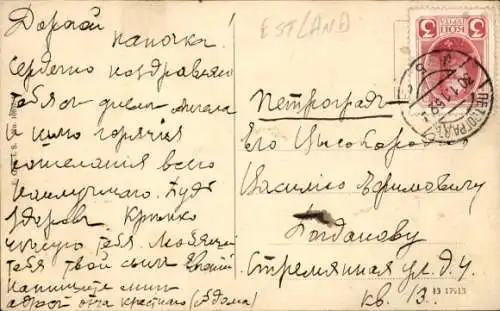 Дорогой
папочка!
Сердечно поздравляю
тебя с днем ангела
и шлю горячия
пожелания всего
наилучшаго. Будь
здоров. Крепко
целую тебя. Любящий
тебя твой сын Евгений
Напишите мне
адрес отца крестнаго (№ дома)
ESTLAND
3 КОП 3
ПЕТРОГРАДЪ
Петроградъ
Его Высокородию
Василию Ефимовичу
Богданову
Стремянная ул. д. 4
кв. 13.
13 17513